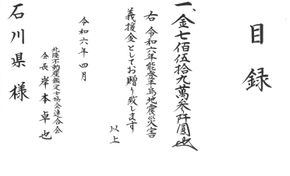 目録
一、金七佰伍拾九萬参阡圓也
右 令和六年能登半島地震災害
義援金としてお贈り致します
以上
令和六年四月
北陸不動産鑑定士協会連合会
会長 岸本卓也
石川県 様